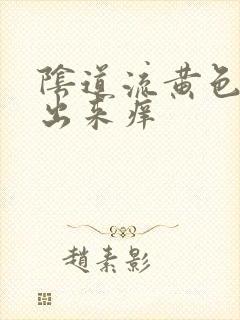 陰道流黄色
出来痒
趙素影